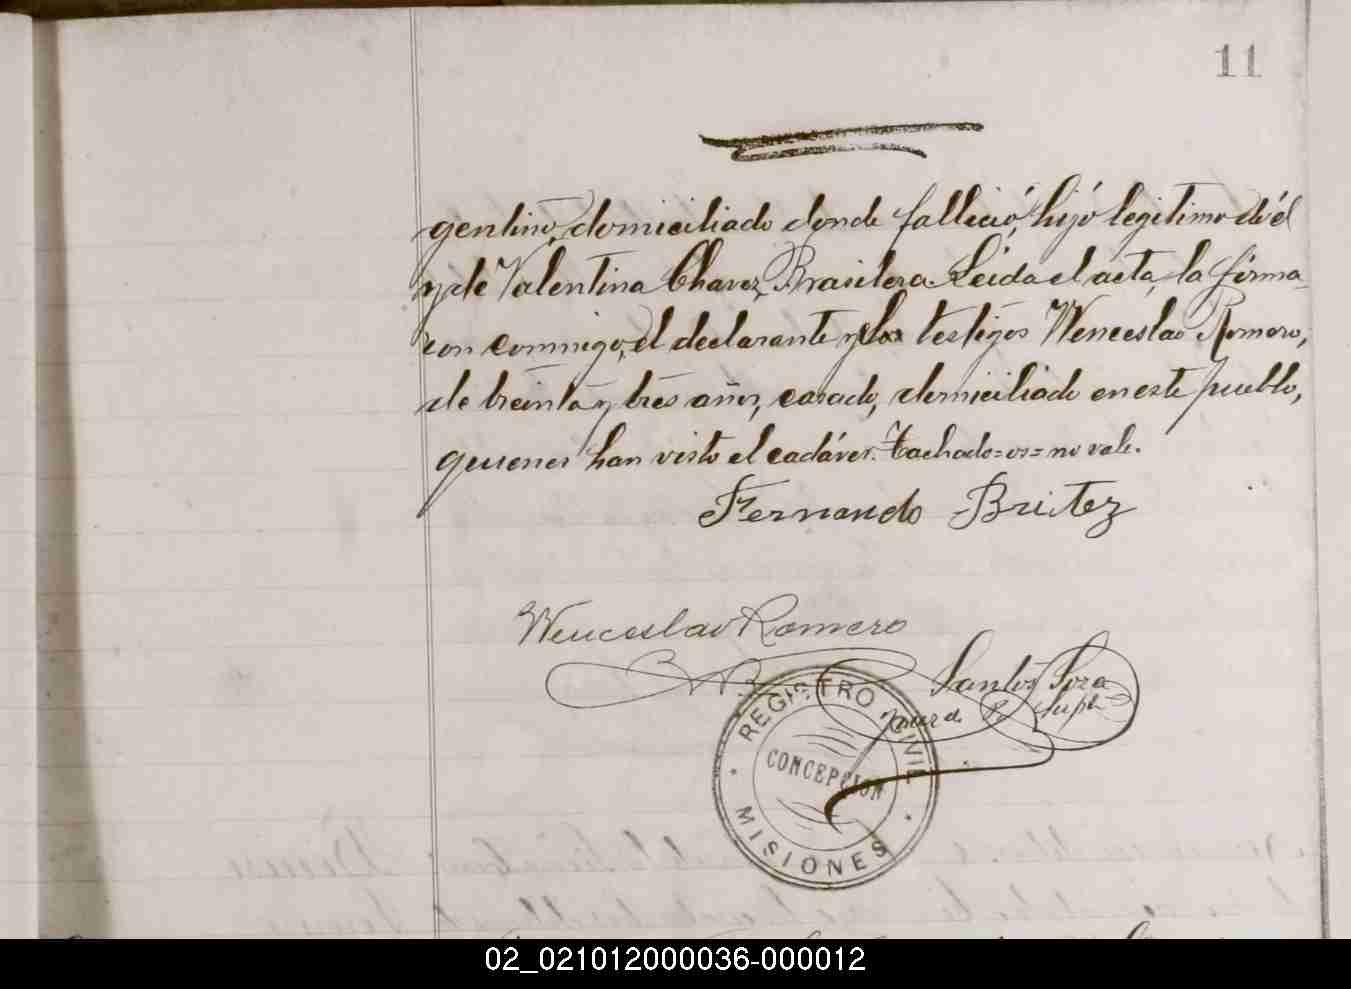 11
gentino, domiciliado donde falleció, hijo legitimo de él
y de Valentina Chavez, Brasilera. Leida el acta, la firma
ron conmigo, el declarante y los testigos Wenceslao Romero,
de treinta y tres años, casado, domiciliado en este pueblo,
quienes han visto el cadáver. Tachado=os=no vale.
Fernando Britez
Wenceslao Romero
Santos Soza
Juez de P. Supl
REGISTRO CIVIL
CONCEPCION
MISIONES
02_021012000036-000012